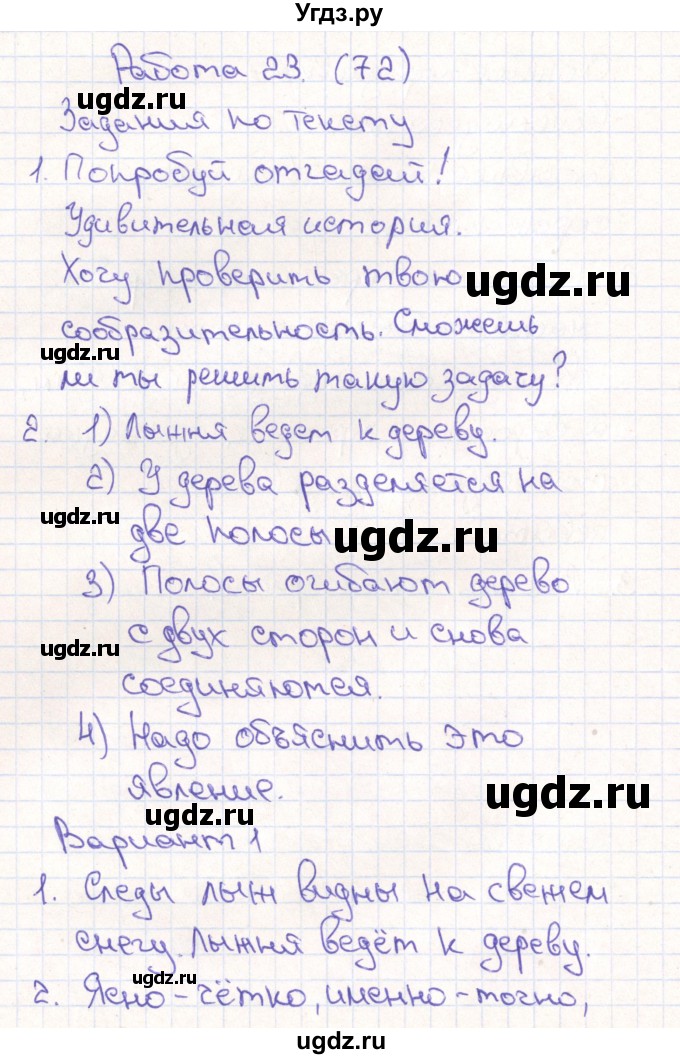 Угдз.ру
Работа 23. (72)
ugdz.ru
Задания по тексту
1. Попробуй отгадай!
Удивительная история.
Хочу проверить твою
ugdz.ru
сообразительность. Сможешь
ugdz.ru
ли ты решить такую задачу?
2. 1) Лыжня ведет к дереву.
2) У дерева разделяется на
ugdz.ru
две полосы
ugdz.ru
3) Полосы огибают дерево
с двух сторон и снова
ugdz.ru
соединяются.
4) Надо объяснить это
явление.
ugdz.ru
ugdz.ru
Вариант 1
1. Следы лыж видны на свежем
снегу. Лыжня ведёт к дереву.
ugdz.ru
2. Ясно-чётко, именно-точно,
ugdz.ru